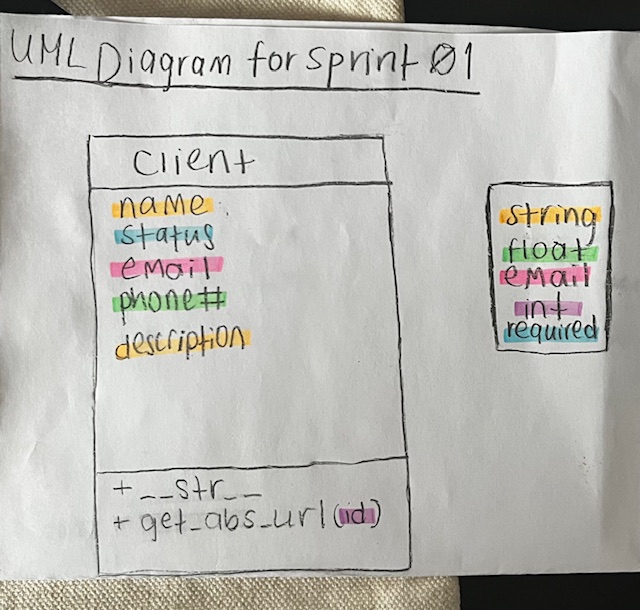 UML Diagram for Sprint 01
Client
name
status
email
phone#
description
+ __str__
+ get_abs_url(id)
string
float
email
int
required